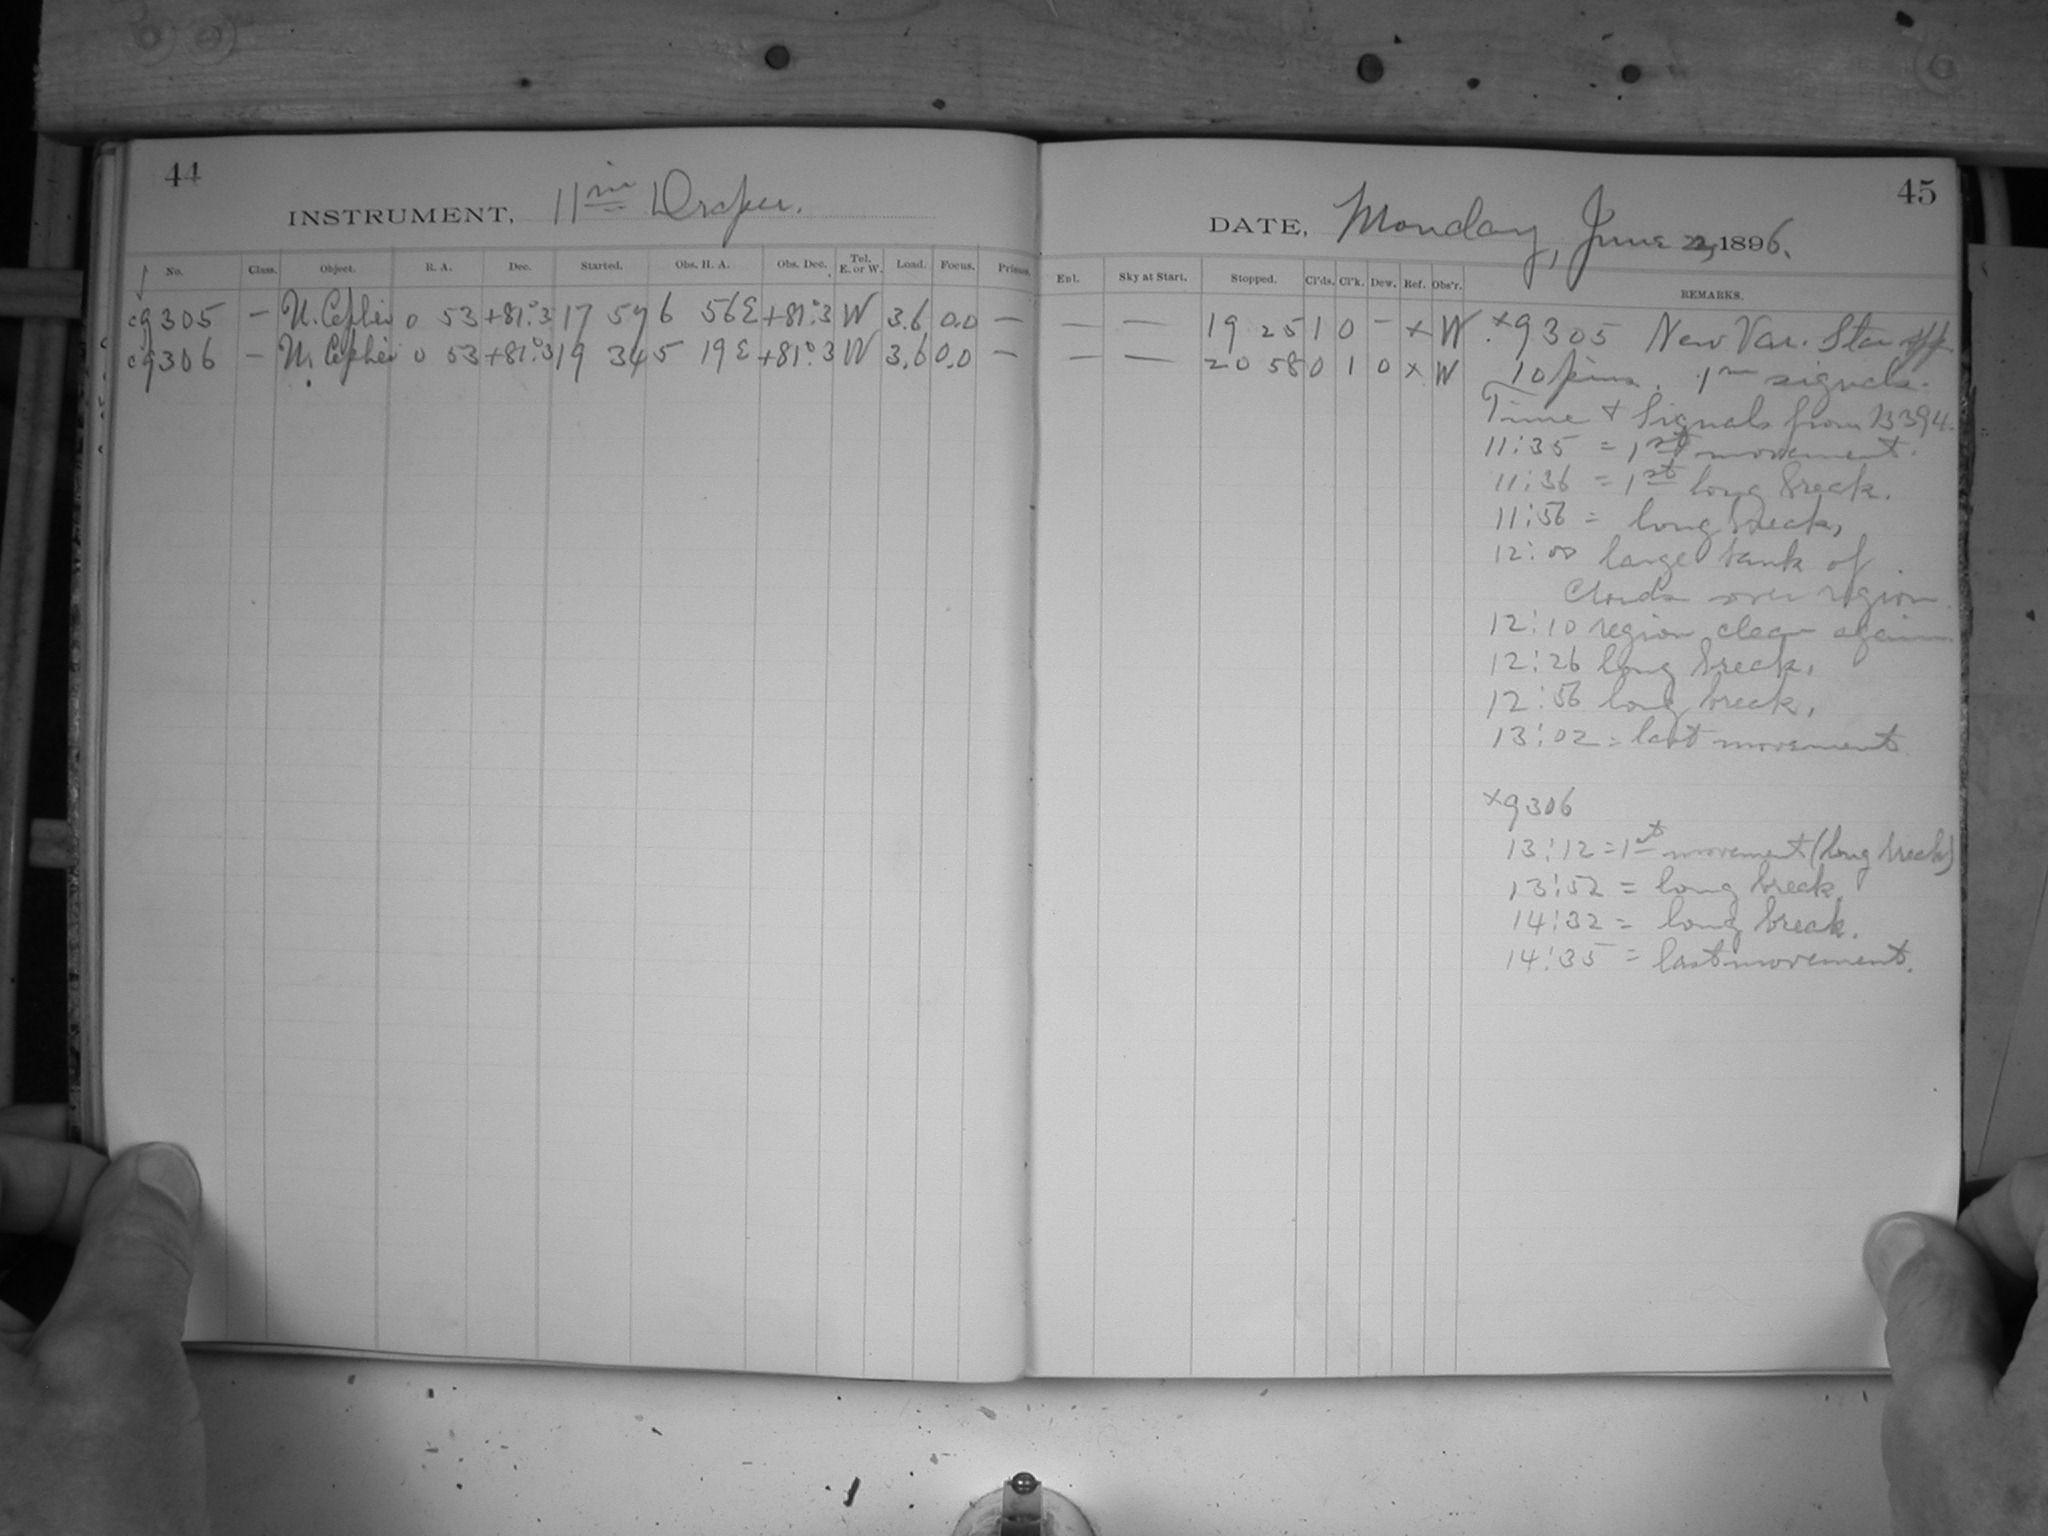 44
INSTRUMENT, 11 in Draper.
No. Class. Object. R. A. Dec. Started. Obs. H. A. Obs. Dec. Tel. E. or W. Load. Focus. Prisms.
c9305 — U. Cephei 0 53 +81°.3 17 57 6 56E +81°.3 W 3.6 0.0 —
c9306 — U. Cephei 0 53 +81°.3 19 34 5 19E +81°.3 W 3.6 0.0 —
45
DATE, Monday, June 22, 1896.
Enl. Sky at Start. Stopped. Cl'ds. Cl'k. Dew. Ref. Obs'r. REMARKS.
— — 19 25 1 0 – × W ×9305 New Var. Star app
— — 20 58 0 1 0 × W 10 pins. 1m signals.
Time & Signals from B394.
11:35 = 1st movement.
11:36 = 1st long break.
11:56 = long break,
12:00 large bank of
Clouds over region.
12:10 region clear again.
12:26 long break.
12:56 long break.
13:02 = last movement
×9306
13:12 = 1st movement (long break)
13:52 = long break
14:32 = long break.
14:35 = last movement.